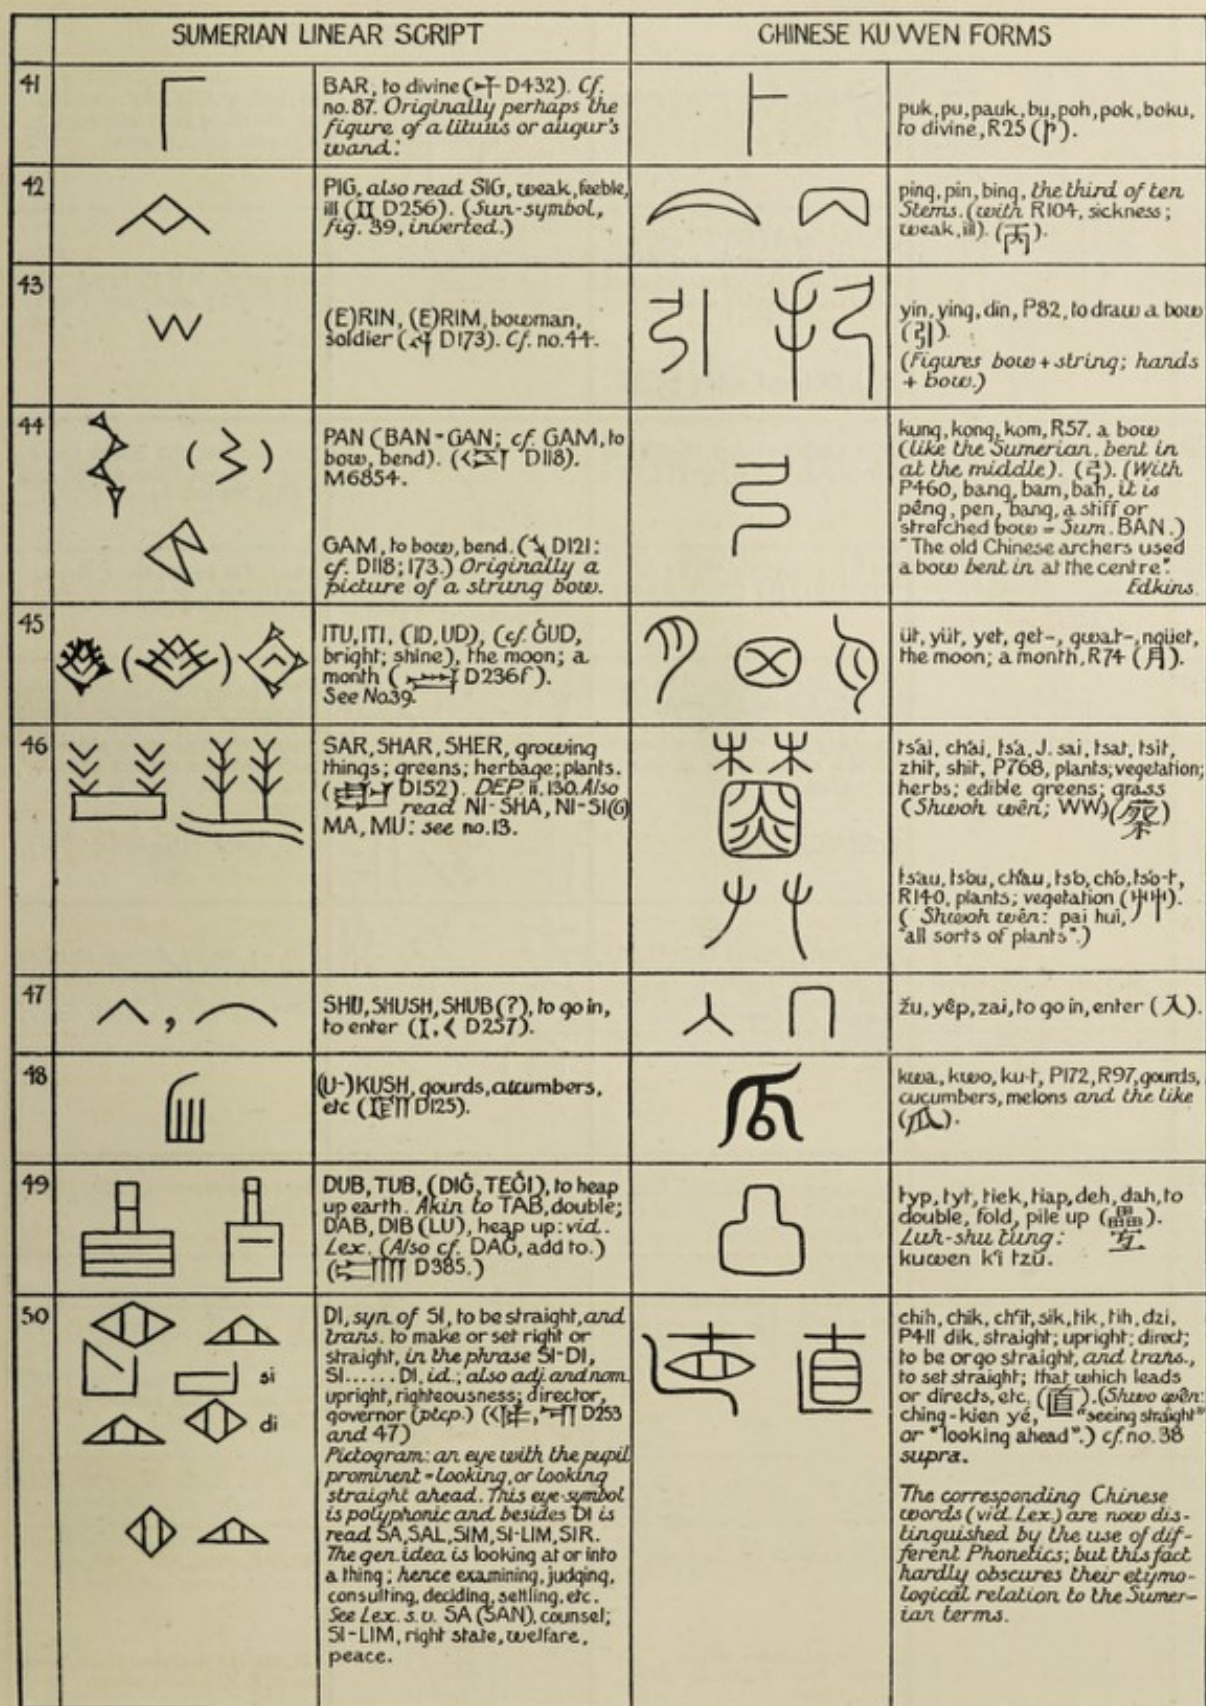 SUMERIAN LINEAR SCRIPT
CHINESE KU WEN FORMS
41
BAR, to divine (D432). Cf.
no. 87. Originally perhaps the
figure of a lituus or augur's
wand:
puk, pu, pauk, bu, poh, pok, boku,
to divine, R25 (卜).
42
PIG, also read SIG, weak, feeble,
ill (D256). (Sun-symbol,
fig. 39, inverted.)
ping, pin, bing, the third of ten
Stems. (with R104, sickness;
weak, ill). (丙).
43
(E)RIN, (E)RIM, bowman,
soldier (D173). Cf. no. 44.
yin, ying, din, P82, to draw a bow
(引).
(Figures bow + string; hands
+ bow.)
44
PAN (BAN = GAN; cf. GAM, to
bow, bend). (D118).
M6854.
GAM, to bow, bend. (D121:
cf. D118; 173.) Originally a
picture of a strung bow.
kung, kong, kom, R57, a bow
(like the Sumerian, bent in
at the middle). (弓). (With
P460, bang, bam, bah, it is
pêng, pen, bang, a stiff or
stretched bow = Sum. BAN.)
"The old Chinese archers used
a bow bent in at the centre".
Edkins.
45
ITU, ITI, (ID, UD), (cf. ĜUD,
bright; shine), the moon; a
month (D236f).
See No39.
üt, yüt, yet, get-, gwat-, ngüet,
the moon; a month, R74 (月).
46
SAR, SHAR, SHER, growing
things; greens; herbage; plants.
(D152). DEP. ii. 130. Also
read NI-SHA, NI-SI(G)
MA, MU: see no. 13.
ts'ai, ch'ai, ts'a, J. sai, tsat, tsit,
zhit, shit, P768, plants; vegetation;
herbs; edible greens; grass
(Shwoh wên; WW) (蔡)
ts'au, ts'ou, ch'au, ts'o, ch'o, ts'o-t,
R140, plants; vegetation (艸).
(Shwoh wên: pai hui,
"all sorts of plants".)
47
SHU, SHUSH, SHUB (?), to go in,
to enter (D257).
žu, yêp, zai, to go in, enter (入).
48
(U-)KUSH, gourds, cucumbers,
etc (D125).
kwa, kwo, ku-t, P172, R97, gourds,
cucumbers, melons and the like
(瓜).
49
DUB, TUB, (DIĜ, TEĜI), to heap
up earth. Akin to TAB, double;
DAB, DIB (LU), heap up: vid.
Lex. (Also cf. DAĜ, add to.)
(D385.)
typ, tyt, tiek, tiap, deh, dah, to
double, fold, pile up (疊).
Luh-shu tung:
kuwen k'i tzŭ.
50
si
di
DI, syn of SI, to be straight, and
trans. to make or set right or
straight, in the phrase SI-DI,
SI...... DI, id.; also adj. and nom.
upright, righteousness; director,
governor (ptcp.) (D253
and 47)
Pictogram: an eye with the pupil
prominent = looking, or looking
straight ahead. This eye-symbol
is polyphonic and besides DI is
read SA, SAL, SIM, SI-LIM, SIR.
The gen. idea is looking at or into
a thing; hence examining, judging,
consulting, deciding, settling, etc.
See Lex. s.v. SA (SAN), counsel;
SI-LIM, right state, welfare,
peace.
chih, chik, ch'it, sik, tik, tih, dzi,
P411 dik, straight; upright; direct;
to be or go straight, and trans.,
to set straight; that which leads
or directs, etc. (直). (Shwo wên:
ching-kien yé, "seeing straight"
or "looking ahead".) cf. no. 38
supra.
The corresponding Chinese
words (vid. Lex.) are now dis-
tinguished by the use of dif-
ferent Phonetics; but this fact
hardly obscures their etymo-
logical relation to the Sumer-
ian terms.